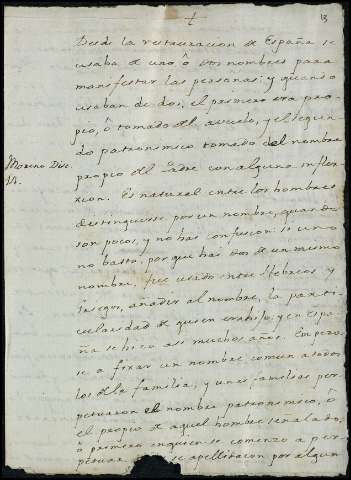 13
Desde la restauracion de España se
usaba de uno ô dos nombres para
manifestar las personas: y quando
usaban de dos, el primero era pro-
pio, ô tomado del avuelo, y el segun-
do patronimico tomado del nombre
Moreno Disc.
14.
propio del Padre con alguna infle-
xion. Es natural entre los hombres
distinguirse por un nombre, quando
son pocos, y no hai confusion: si uno
no basta, por que hai dos de un mismo
nombre, fue usado entre Hebreos y
Griegos, añadir al nombre, la parti-
cularidad de quien era hijo, y en Espa-
ña se hizo assi muchos años. Empezo-
se a fixar un nombre comun a todos
los de la familia, y unas familias per-
petuaron el nombre patronimico, ô
el propio de aquel hombre señalado,
ô primero en quien se comenzo a per-
petuar se apellidaron por algun